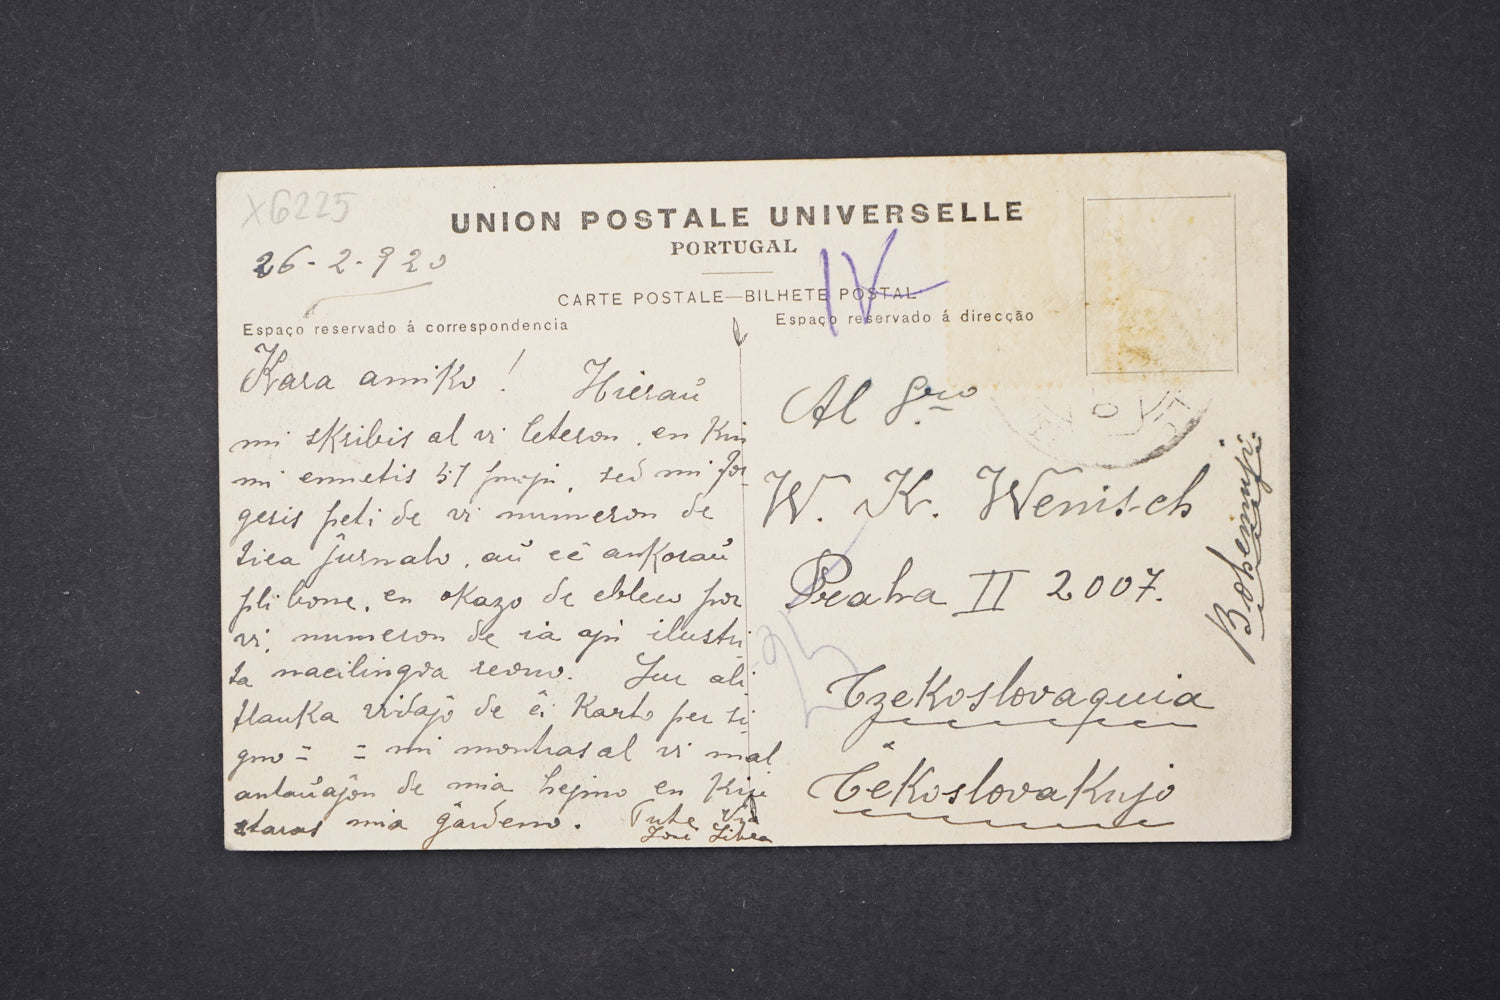 X6225
UNION POSTALE UNIVERSELLE
PORTUGAL
26-2-920
CARTE POSTALE—BILHETE POSTAL
Espaço reservado á correspondencia
Espaço reservado á direcção
IV
Kara amiko! Hieraŭ
mi skribis al vi leteron, en kiu
mi enmetis 51, sed mi for
gesis peti de vi numeron de
tiea ĵurnalo, aŭ eĉ ankoraŭ
pli bone, en okazo de ebleco por
vi, numeron de ia ajn ilustri
ta nacilingva revuo. Sur ali
flanka vidaĵo de ĉi karto per si
gno = = mi montras al vi mal
antaŭaĵon de mia hejmo en kiu
staras mia ĝardeno. Tute Via
José
Al Sro
W. K. Wenisch
Praha II 2007.
Czekoslovaquia
Ĉekoslovakujo